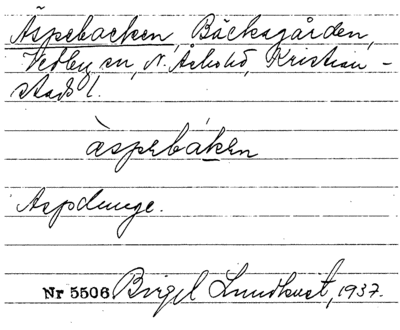 Äspebacken, Bäcksgården,
Vedby sn, N. Åsbo hd, Kristian-
stads l.
àspebáken
Aspdunge.
Nr 5506 Birgit Lundkvist, 1937.